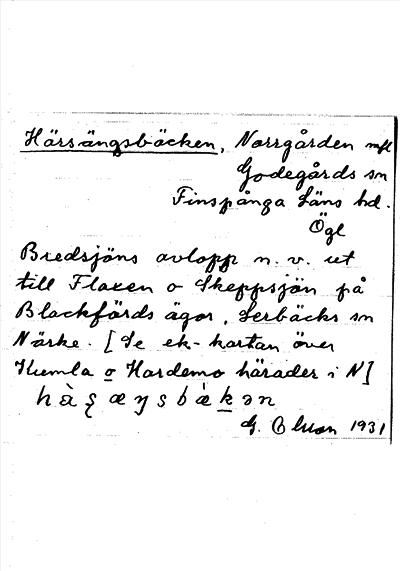 Härsängsbäcken, Norrgården mfl
Godegårds sn
Finspånga Läns hd.
Ögl
Bredsjöns avlopp n. v. ut
till Flaxen o Skeppsjön på
Blackförds ägor, Lerbäcks sn
Närke. [Se ek-kartan över
Kumla o Hardemo härader i N]
G. 1931